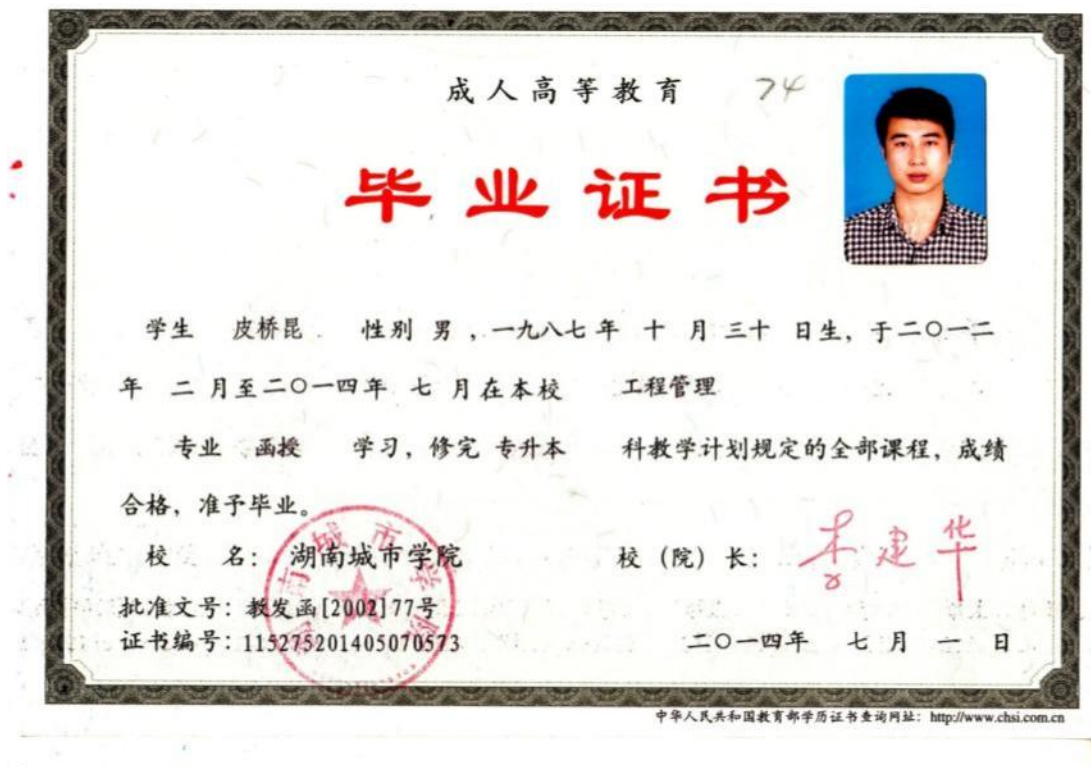 成人高等教育 74
毕业证书
学生 皮桥昆 性别 男 ，一九八七年 十 月 三十 日生，于二〇一二
年 二 月至二〇一四年 七 月在本校 工程管理
专业 函授 学习，修完 专升本 科教学计划规定的全部课程，成绩
合格，准予毕业。
校 名： 湖南城市学院 校（院）长： 李建华
批准文号：教发函[2002]77号
证书编号：115275201405070573 二〇一四年 七 月 一 日
湖南城市学院
中华人民共和国教育部学历证书查询网址：http://www.chsi.com.cn